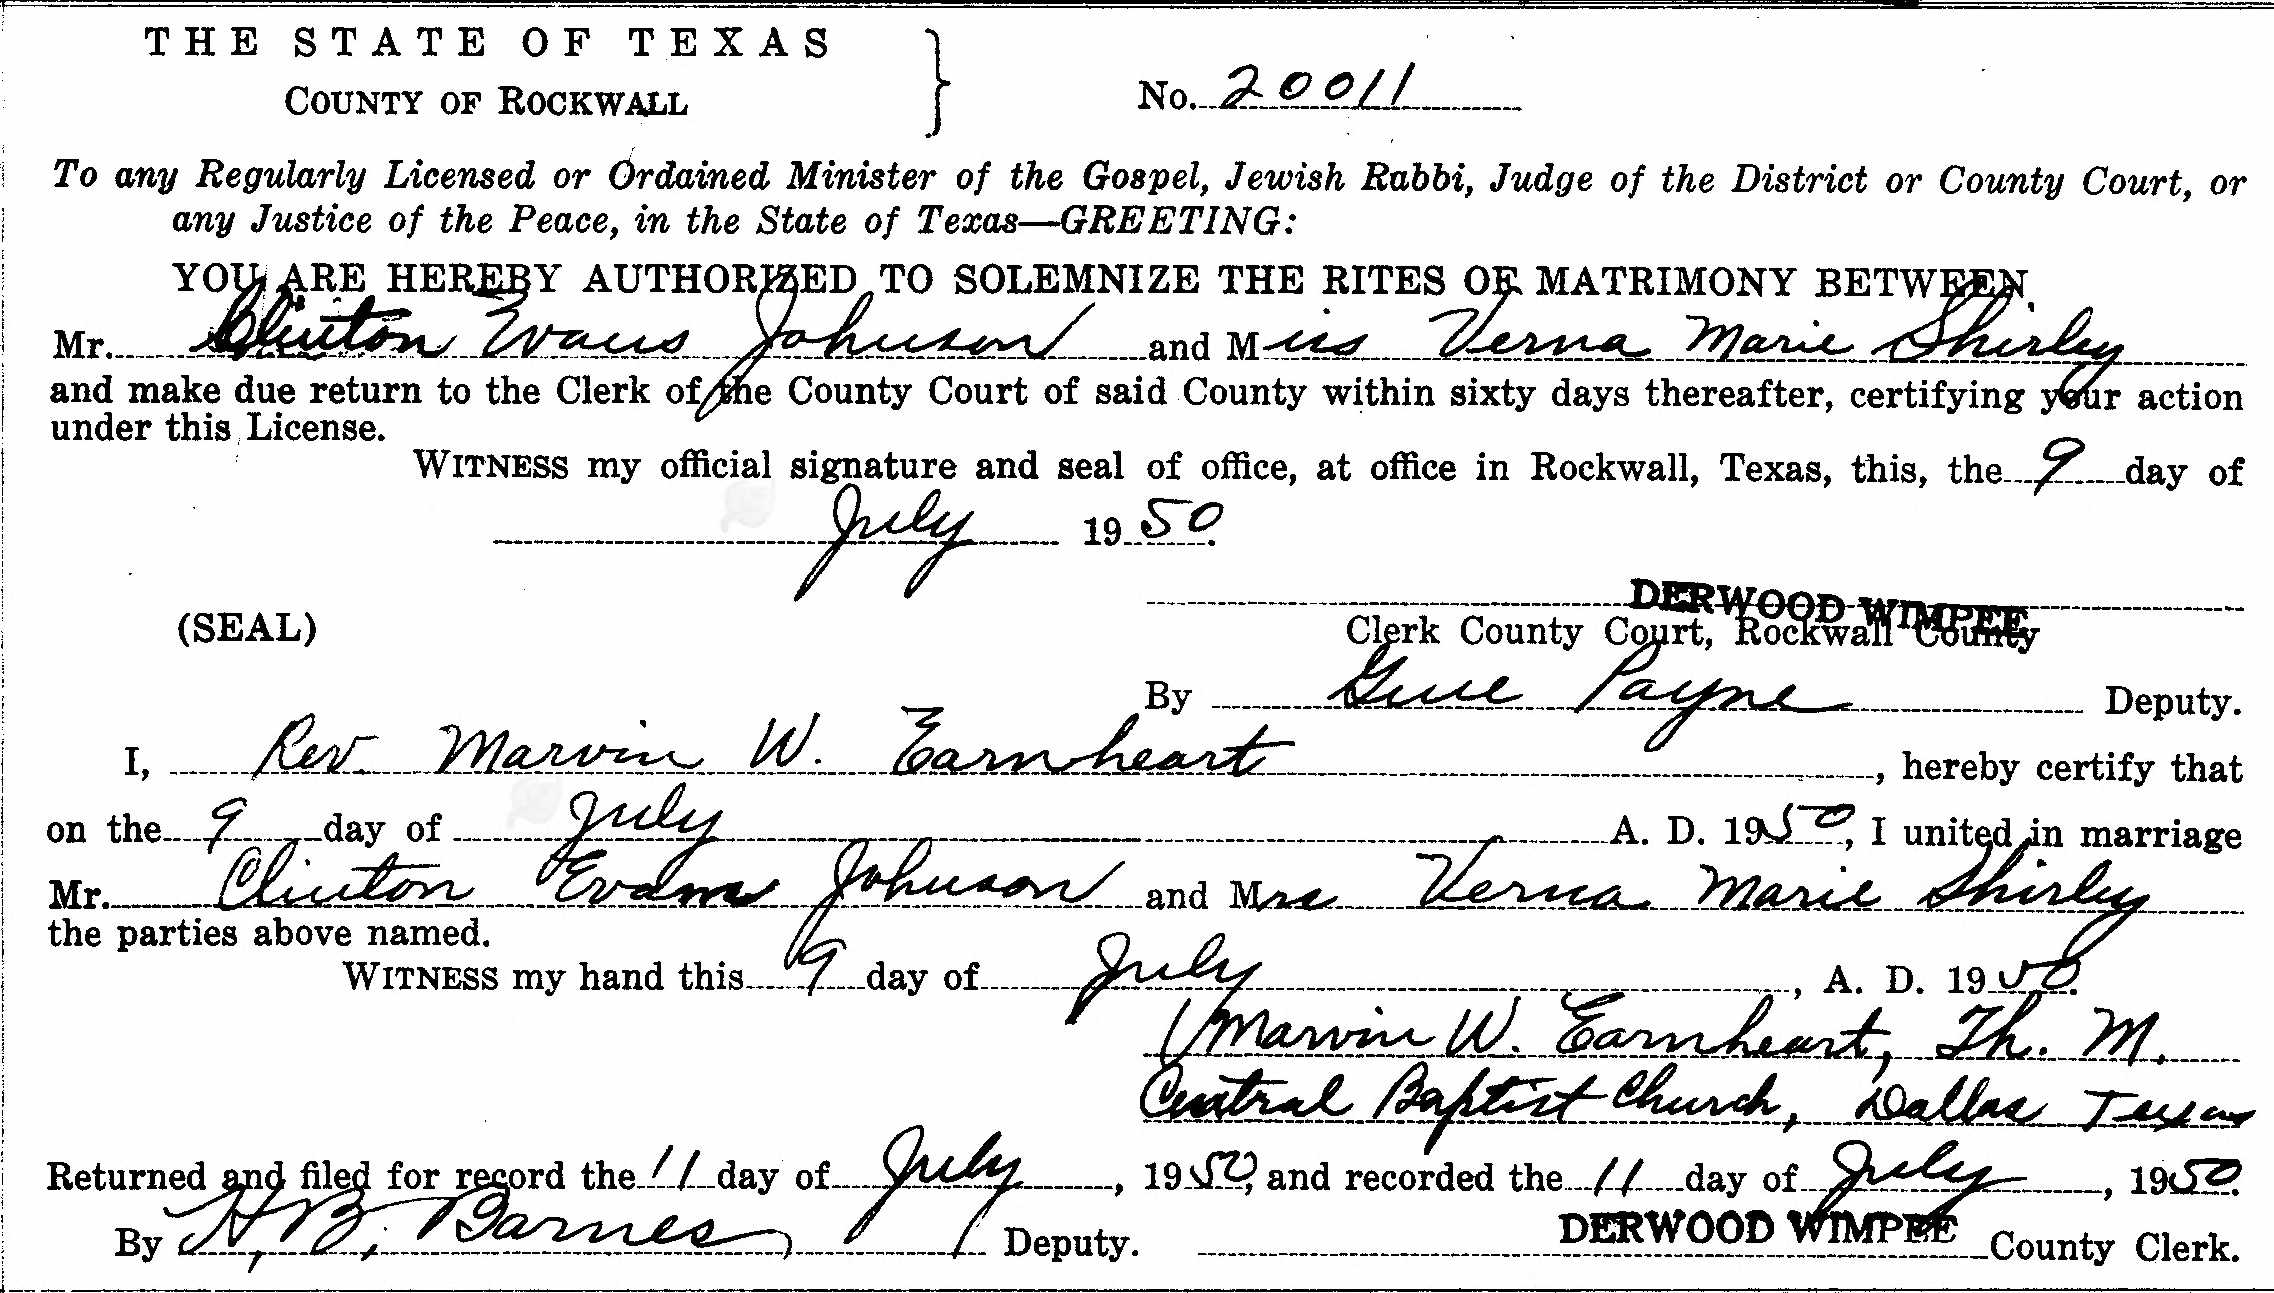 THE STATE OF TEXAS
COUNTY OF ROCKWALL
No. 20011
To any Regularly Licensed or Ordained Minister of the Gospel, Jewish Rabbi, Judge of the District or County Court, or
any Justice of the Peace, in the State of Texas—GREETING:
YOU ARE HEREBY AUTHORIZED TO SOLEMNIZE THE RITES OF MATRIMONY BETWEEN
Mr. Clinton Evans Johnson and Miss Verna Marie Shirley
and make due return to the Clerk of the County Court of said County within sixty days thereafter, certifying your action
under this License.
WITNESS my official signature and seal of office, at office in Rockwall, Texas, this, the 9 day of
July 1950.
DERWOOD WIMPEE
(SEAL)
Clerk County Court, Rockwall County
By Payne Deputy.
I, Rev. Marvin W. Earnheart, hereby certify that
on the 9 day of July A. D. 1950, I united in marriage
Mr. Clinton Evans Johnson and Mrs Verna Marie Shirley
the parties above named.
WITNESS my hand this 9 day of July, A. D. 1950.
Marvin W. Earnheart, Th. M.
Central Baptist Church, Dallas Texas
Returned and filed for record the 11 day of July, 1950, and recorded the 11 day of July, 1950.
By H. B. Barnes, Deputy. DERWOOD WIMPEE County Clerk.